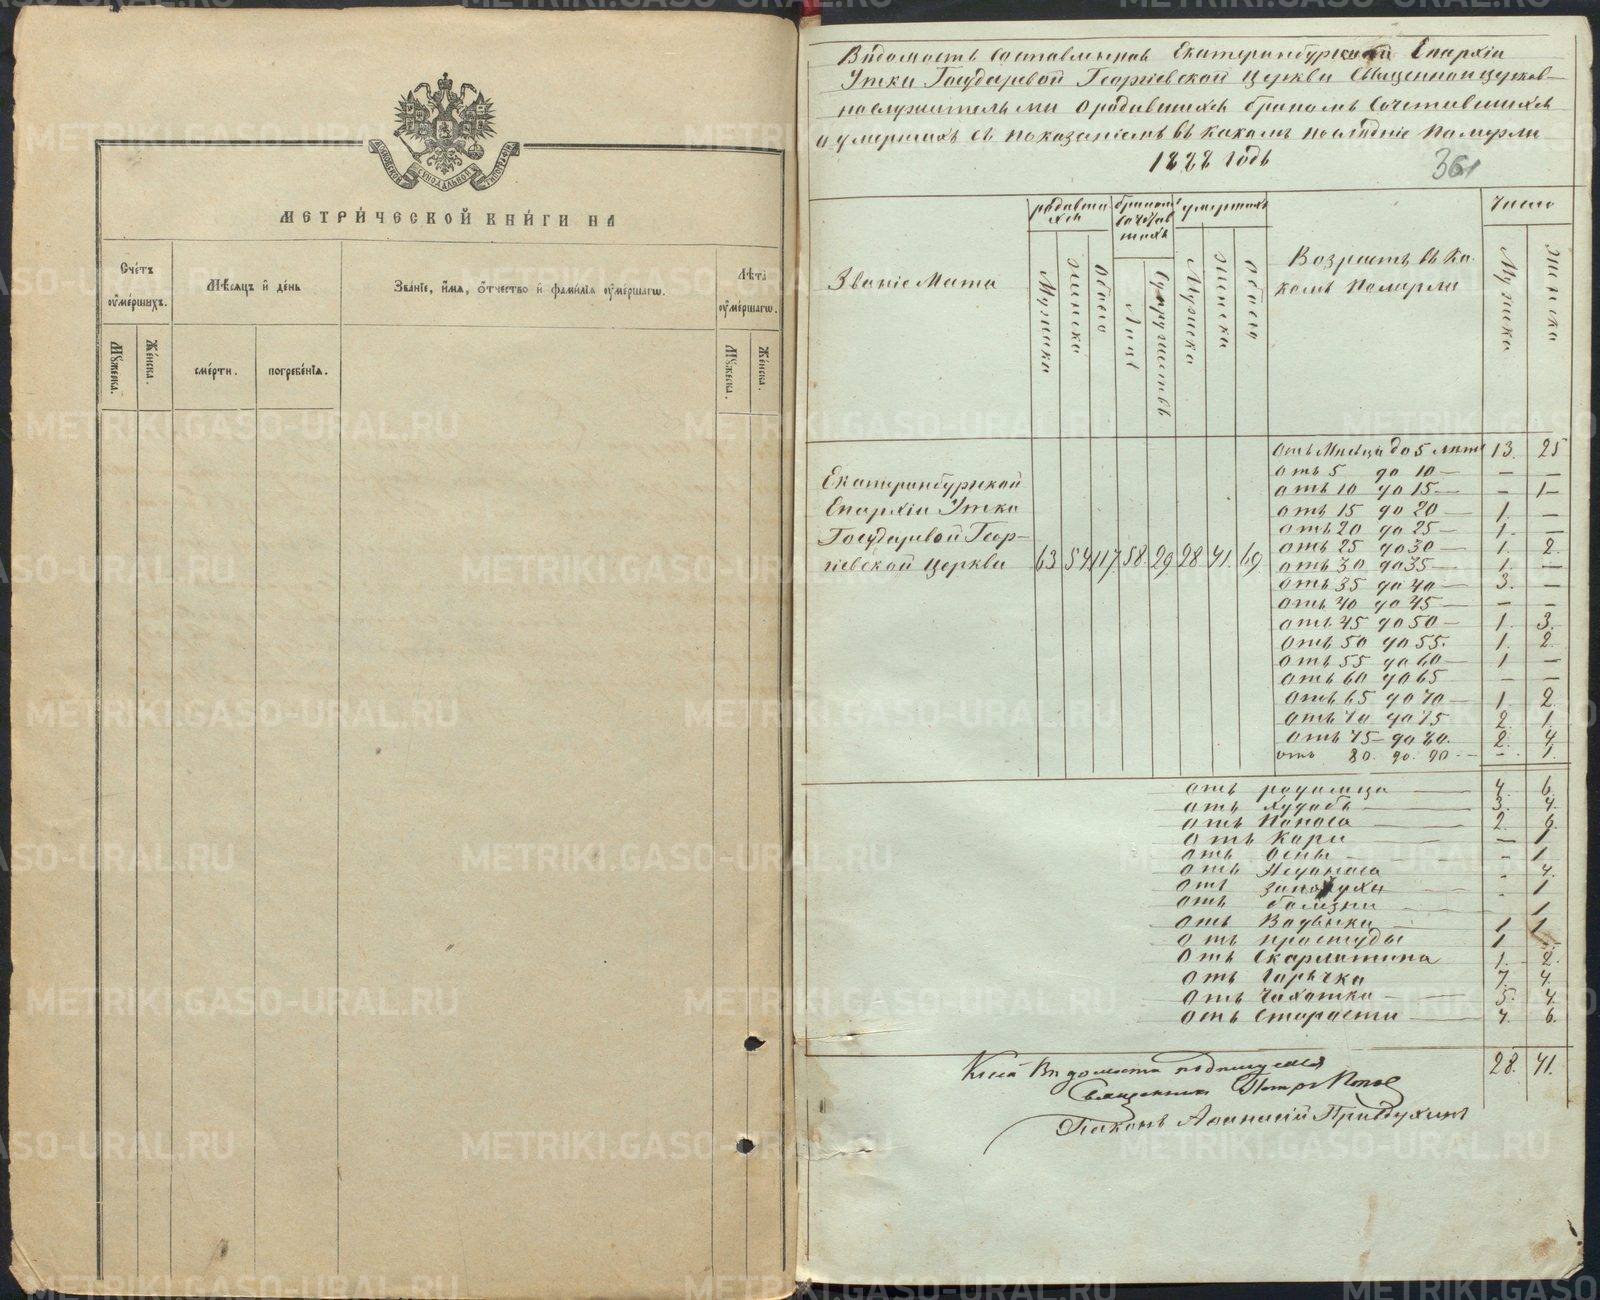 МОСКОВСКОЙ СѴНОДАЛЬНОЙ ТИПОГРАФІИ
МЕТРИ́ЧЕСКОЙ КНИ́ГИ НА
Сче́тъ ᲂу҆ме́ршихъ.
Мѣ́сяцъ и҆ де́нь
Зва́нїе, и҆́мя, ѻ҆́тчество и҆ фами́лїя ᲂу҆ме́ршагѡ.
Лѣ́та ᲂу҆ме́ршагѡ.
Мꙋ́жеска.
Же́нска.
сме́рти.
погребе́нїя.
Мꙋ́жеска.
Же́нска.
Вѣдомость составленная Екатеринбургской Епархіи
Утки Государевой Георгіевской церкви Священноцерков-
нослужительми о родившихся бракомъ сочетавшихся
и умершихъ съ показаніемъ въ какомъ последніе Померли
1888 годъ
361
Званіе Места
родивши хся
Мужска
женска
обоего
бракомъ сочетав шихъ
Лицъ
Супружествъ
умершихъ
Мужска
женска
обоего
Возрастъ въ ка
комъ Померли
Число
Мужска
женска
Екатеринбургской
Епархіи Утко
Государевой Геор-
гіевской церкви 63 54 117. 58. 29. 28 41. 69
отъ Месяца до 5 летъ 13. 25
отъ 5 до 10 — — —
отъ 10 до 15 — — 1 —
отъ 15 до 20 — 1. —
отъ 20 до 25 — 1. —
отъ 25 до 30 — 1. 2.
отъ 30 до 35 — 1. —
отъ 35 до 40 — 3. —
отъ 40 до 45 — — —
отъ 45 до 50 — 1. 3.
отъ 50 до 55. 1. 2.
отъ 55 до 60 — 1 —
отъ 60 до 65 — —
отъ 65 до 70 — 1. 2.
отъ 70 до 75 2. 1.
отъ 75 — до 80. 2. 4.
отъ 80. до. 90. — - 1.
отъ родимца — 4. 6.
отъ худобы — 3. 4.
отъ Поноса — 2. 6.
отъ Кори — — 1
отъ Оспы — - 1.
отъ - 4.
отъ - 1
отъ болезни 1
отъ 1 1
отъ простуды 1 -
отъ Скарлатина 1. 2.
отъ Горячка 7. 4.
отъ Чахотка — 5. 4.
отъ Старости — 4. 6.
28. 41.
Къ сей Ведомости подписуемся
Священникъ Петръ Поповъ
Діаконъ Афанасій
METRIKI.GASO-URAL.RU